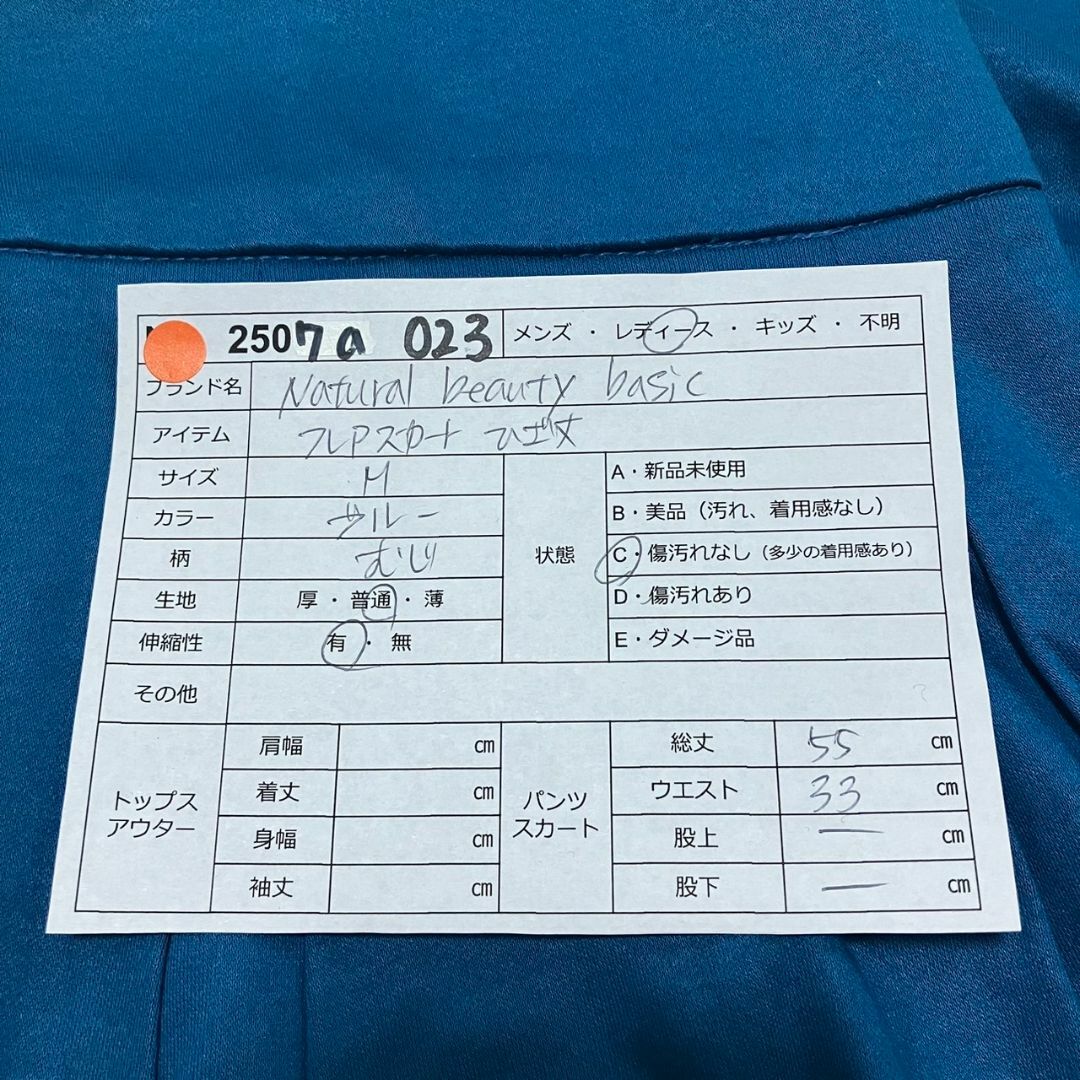 2507a 023 メンズ・レディース・キッズ・不明
ブランド名 Natural beauty basic
アイテム フレアスカート ひざ丈
サイズ M
カラー ブルー
柄 むじ
生地 厚・普通・薄
伸縮性 有・無
状態
A・新品未使用
B・美品（汚れ、着用感なし）
C・傷汚れなし（多少の着用感あり）
D・傷汚れあり
E・ダメージ品
その他
トップス
アウター
肩幅 cm
着丈 cm
身幅 cm
袖丈 cm
パンツ
スカート
総丈 55 cm
ウエスト 33 cm
股上 ー cm
股下 ー cm